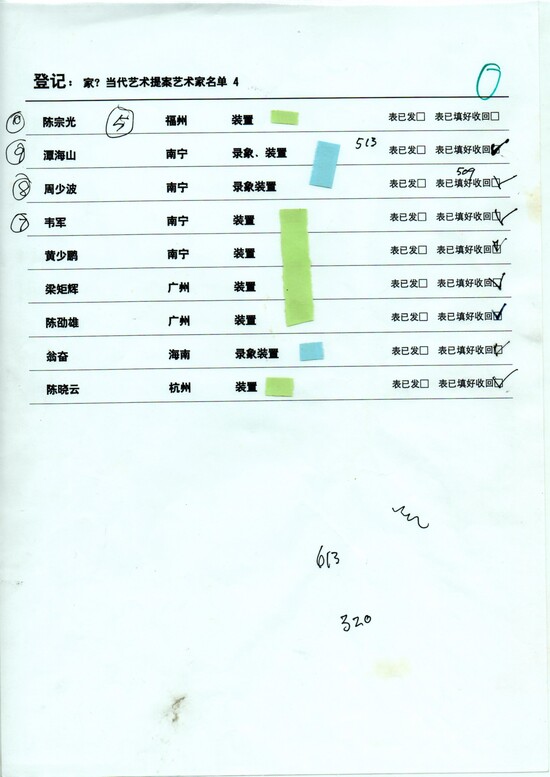 登记：家？当代艺术提案艺术家名单 4
⑩ 陈宗光 ⑤ 福州 装置 表已发□ 表已填好收回□
⑨ 潭海山 南宁 录象、装置 513 表已发□ 表已填好收回☑
509
⑧ 周少波 南宁 录象装置 表已发□ 表已填好收回☑
⑦ 韦军 南宁 装置 表已发□ 表已填好收回☑
黄少鹏 南宁 装置 表已发□ 表已填好收回☑
梁矩辉 广州 装置 表已发□ 表已填好收回☑
陈劭雄 广州 装置 表已发□ 表已填好收回☑
翁奋 海南 录象装置 表已发□ 表已填好收回☑
陈晓云 杭州 装置 表已发□ 表已填好收回☑
613
320